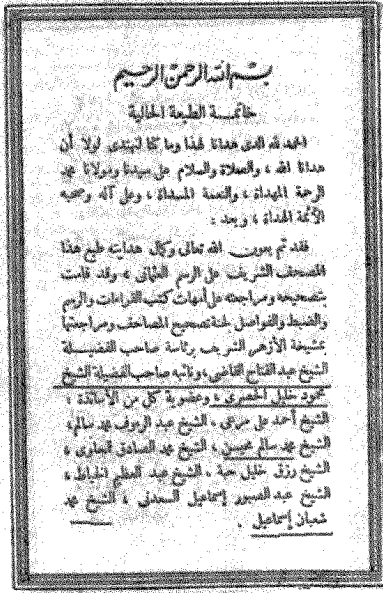 بسم الله الرحمن الرحيم
خاتمة الطبعة الحالية
الحمد لله الذى هدانا لهذا وما كنا لنهتدى لولا أن
هدانا الله ، والصلاة والسلام على سيدنا ومولانا محمد
الرحمة المهداة ، والنعمة المسداة ، وعلى آله وصحبه
الأئمة الهداة ، وبعد :
فقد تم بعون الله تعالى وكمال هدايته طبع هذا
المصحف الشريف على الرسم العثمانى ، وقد قامت
بتصحيحه ومراجعته على أمهات كتب القراءات والرسم
والضبط والفواصل لجنة تصحيح المصاحف ومراجعتها
بمشيخة الأزهر الشريف برئاسة صاحب الفضيلة
الشيخ عبد الفتاح القاضى ، ونائبه صاحب الفضيلة الشيخ
محمود خليل الحصرى ، وعضوية كل من الأساتذة :
الشيخ أحمد على مرعى ، الشيخ عبد الرءوف محمد سالم،
الشيخ محمد سالم محيسن ، الشيخ محمد الصادق قمحاوى ،
الشيخ رزق خليل حبة ، الشيخ عبد العظيم الخياط ،
الشيخ عبد الصبور إسماعيل السعدنى ، الشيخ محمد
شعبان إسماعيل .